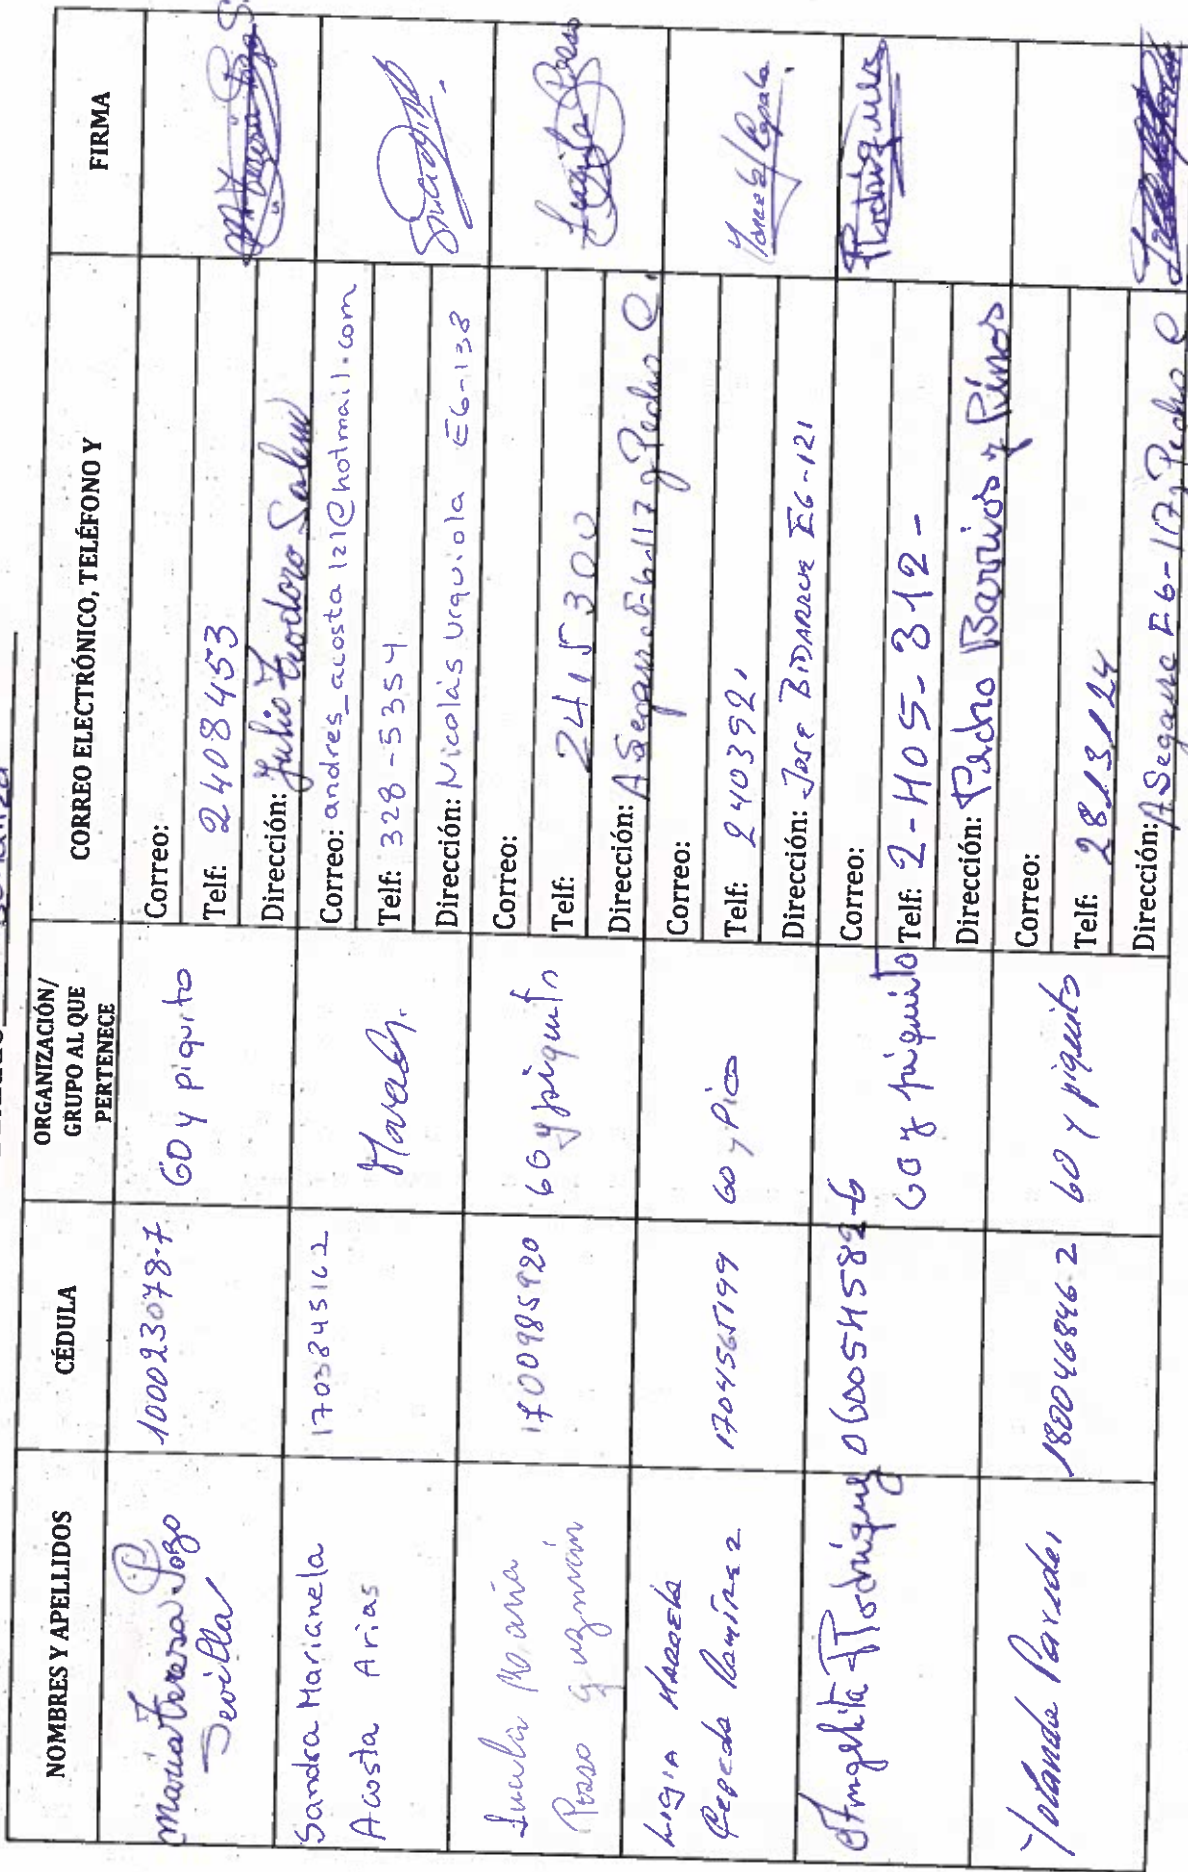 NOMBRES Y APELLIDOS CÉDULA ORGANIZACIÓN/ GRUPO AL QUE PERTENECE CORREO ELECTRÓNICO, TELÉFONO Y FIRMA
Maria Teresa Pozo
Sevilla
100023078-7
60 y piquito
Correo:
Telf: 2408453
Dirección: Julio Teodoro Salem
Sandra Marianela
Acosta Arias
1703845162
Correo: andres_acosta121@hotmail.com
Telf: 328-5354
Dirección: Nicolás Urquiola E6-138
Lucila María
Pozo Guzmán
1700985920
60 y piquito
Correo:
Telf: 2415300
Dirección: A Segura E6-117 y Pedro Q.
Ligia Marcela
Cepeda Ramírez
1704565199
60 y Pico
Correo:
Telf: 2403921
Dirección: Jose BIDARRUE E6-121
Angelita Rodríguez
060054582-6
60 y piquito
Correo:
Telf: 2-405-312-
Dirección: Pedro Barrios y Pinos
Rodríguez
Yolanda Paredes
180046846-2
60 y piquito
Correo:
Telf: 2813124
Dirección: A Segura E6-117 y Pedro Q